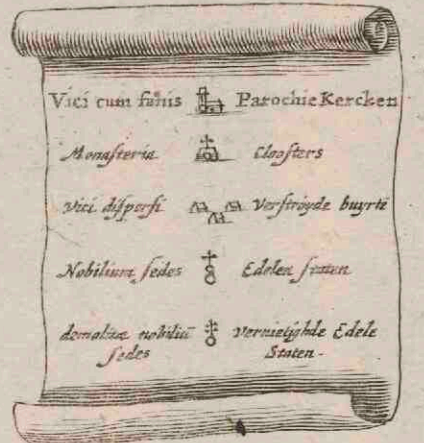 Vici cum fanis Parochie Kercken
Monasteria Cloosters
Vici dispersi Verströyde buyrtē
Nobilium sedes Edelen staten
demolitæ nobiliū Vernietighde Edele
sedes Staten